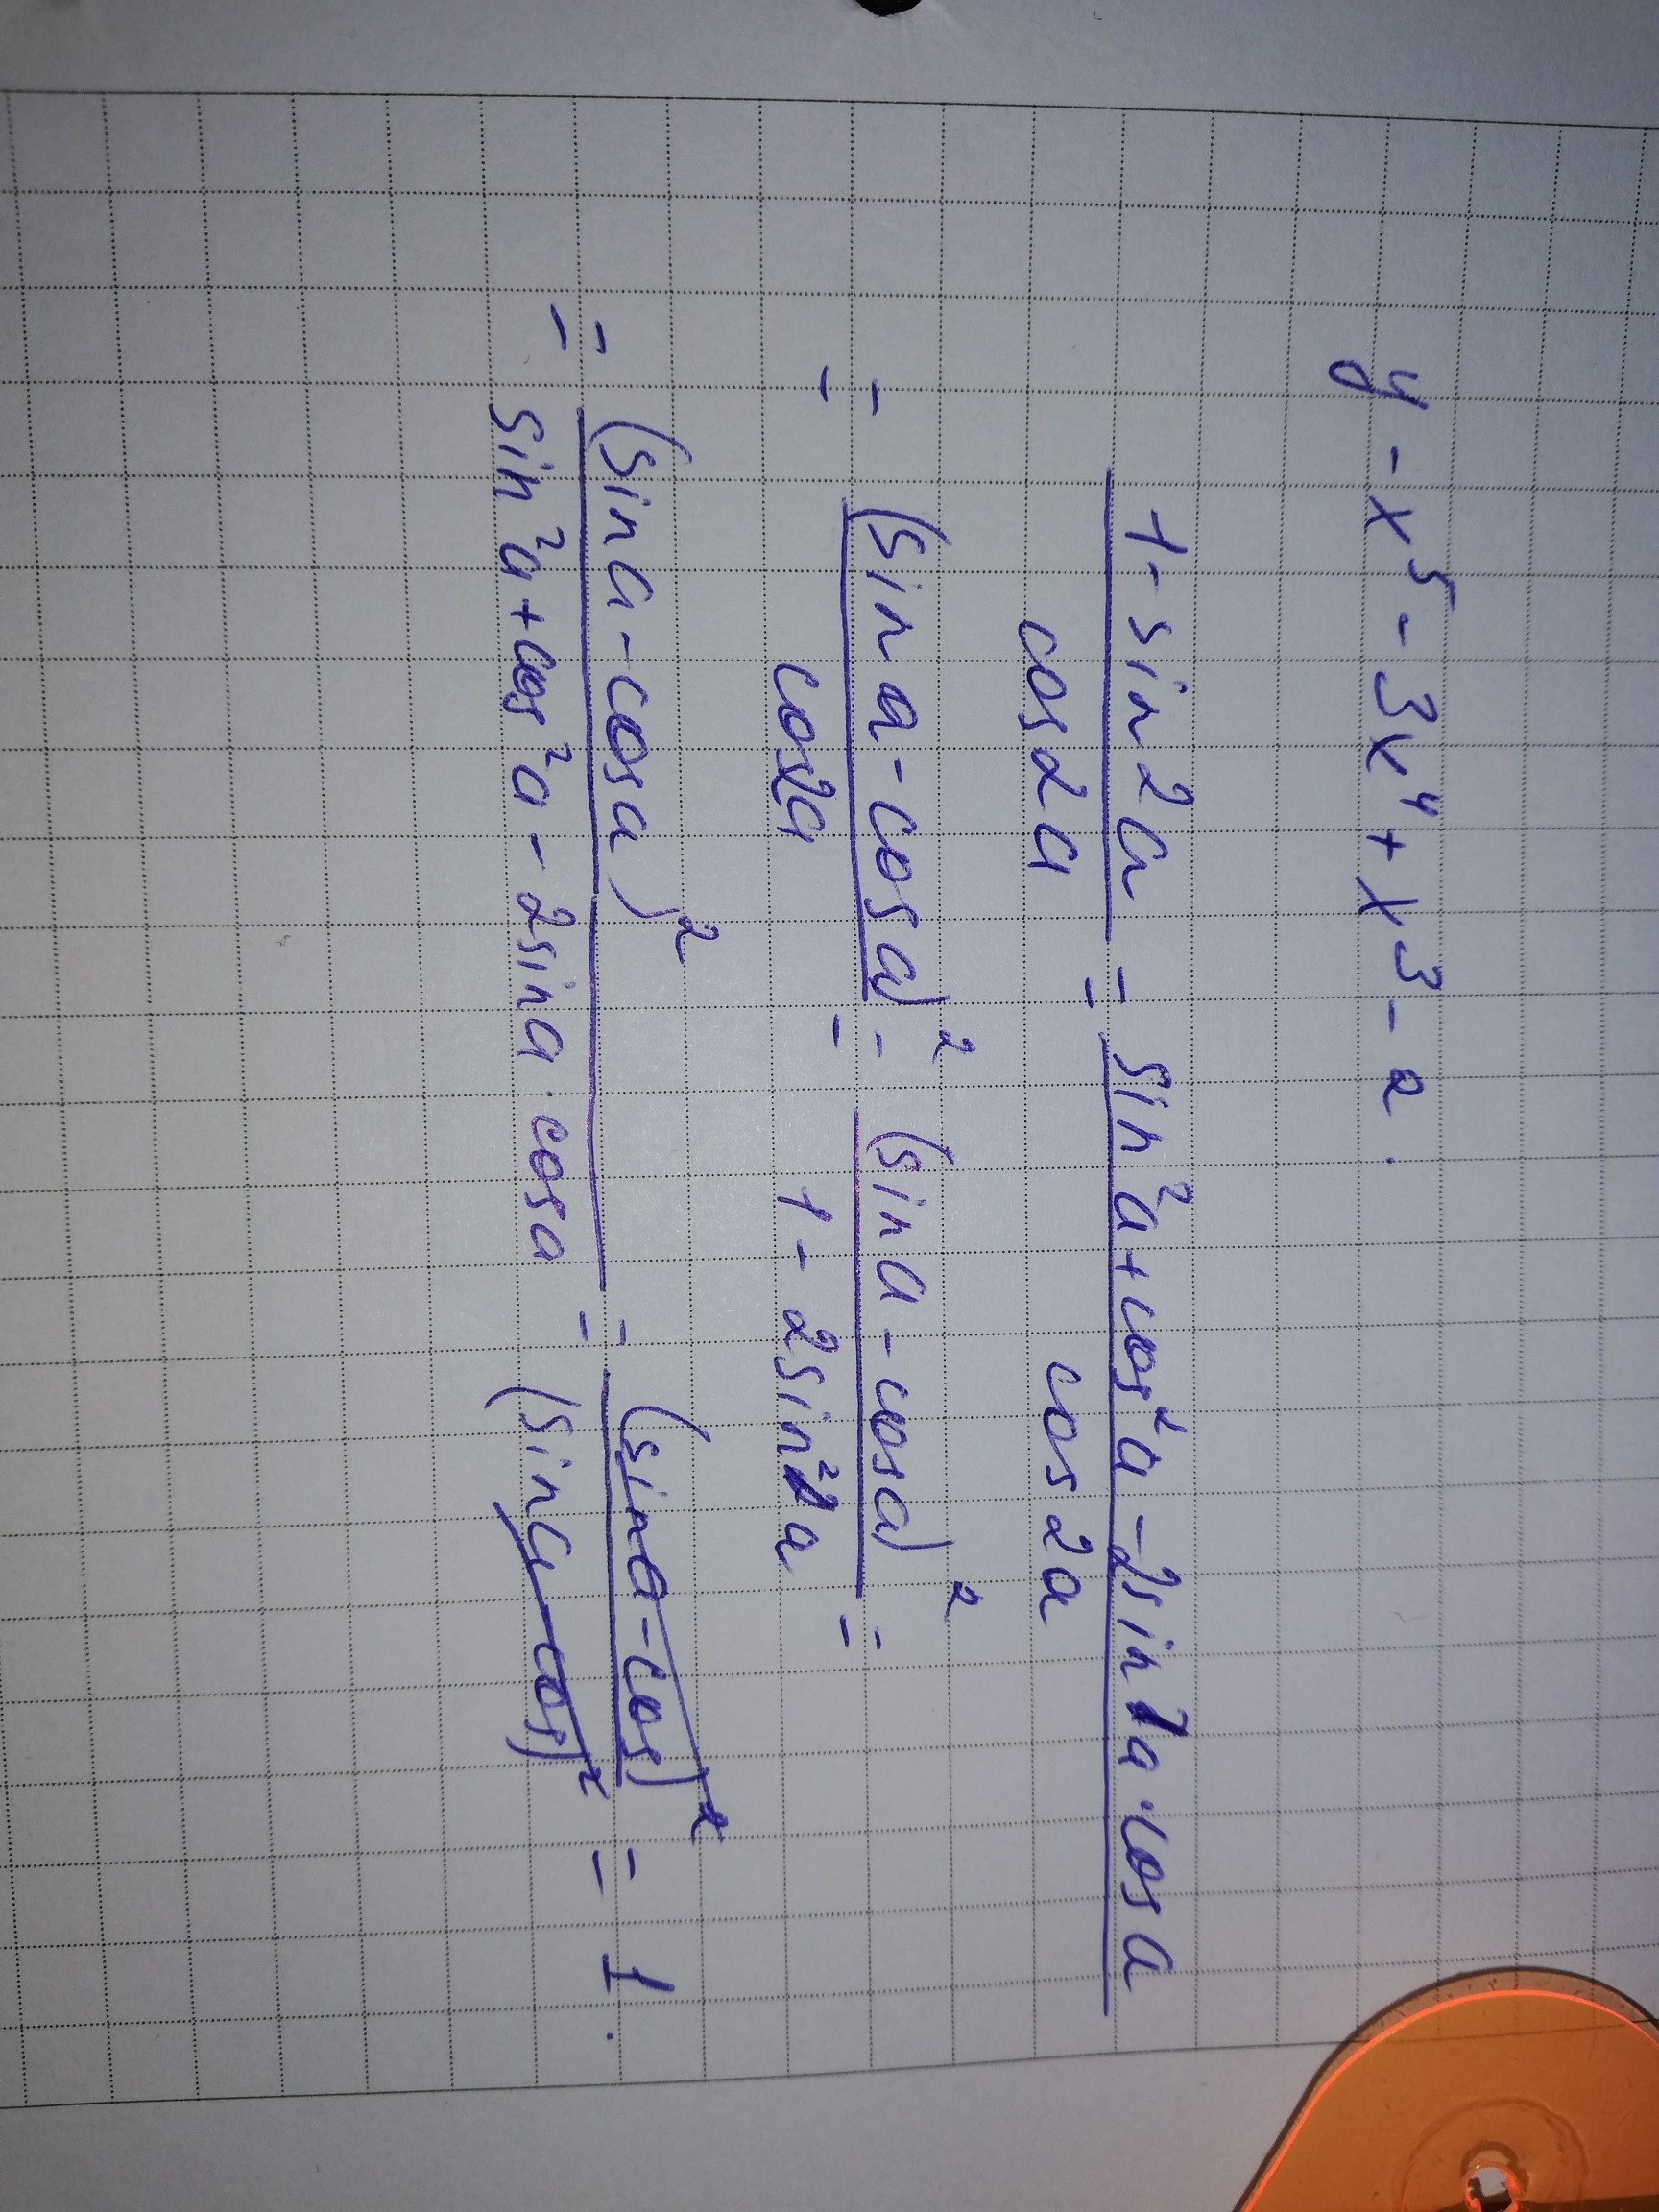 y - x⁵ - 3x⁴ + x³ - 2.
(1 - sin2a)/(cos2a) = (sin²a + cos²a - 2sina · cosa)/(cos2a)
= (sina - cosa)²/(cos2a) = (sina - cosa)²/(1 - 2sin²a) =
= (sina - cosa)²/(sin²a + cos²a - 2sina · cosa) = (sina - cos)²/(sina - cos)² = 1.